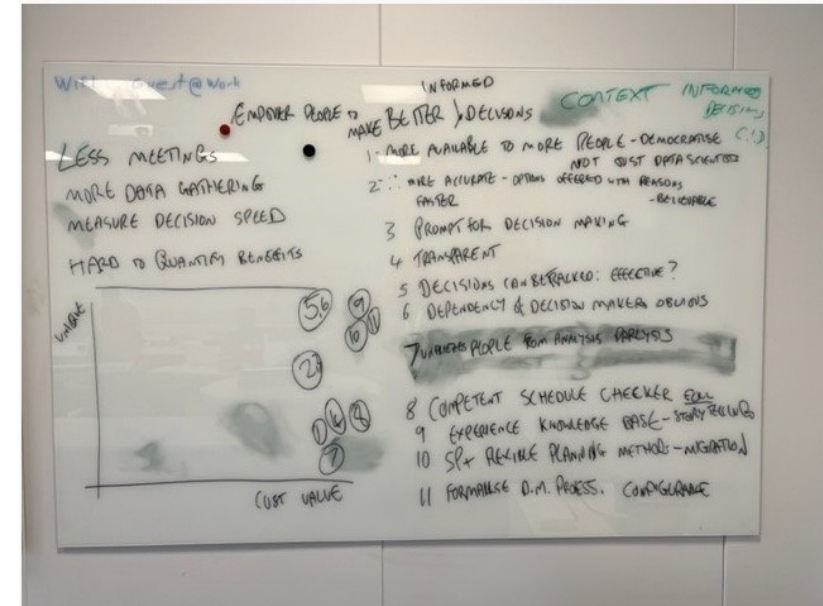 Guest@Work
INFORMED
EMPOWER PEOPLE TO
MAKE BETTER DECISONS
CONTEXT INFORMED
DECISIONS
LESS MEETINGS
MORE DATA GATHERING
MEASURE DECISION SPEED
HARD TO QUANTIFY BENEFITS
1 - MORE AVAILABLE TO MORE PEOPLE - DEMOCRATISE
NOT JUST DATA SCIENTISTS
2 MORE ACCURATE - OPTIONS OFFERED WITH REASONS
FASTER - BELIEVABLE
3 PROMPT FOR DECISION MAKING
4 TRANSPARENT
5 DECISIONS CAN BE TRACKED: EFFECTIVE?
6 DEPENDENCY & DECISION MAKERS OBVIOUS
7 PEOPLE FROM ANALYSIS PARALYSIS
8 COMPETENT SCHEDULE CHECKER
9 EXPERIENCE KNOWLEDGE BASE - STORY TELLING
10 SP+ FLEXIBLE PLANNING METHODS - MIGRATION
11 FORMALISE D.M. PROCESS. CONFIGURABLE
UNIQUE
5,6
9
10
11
2
1
4
8
7
CUST VALUE